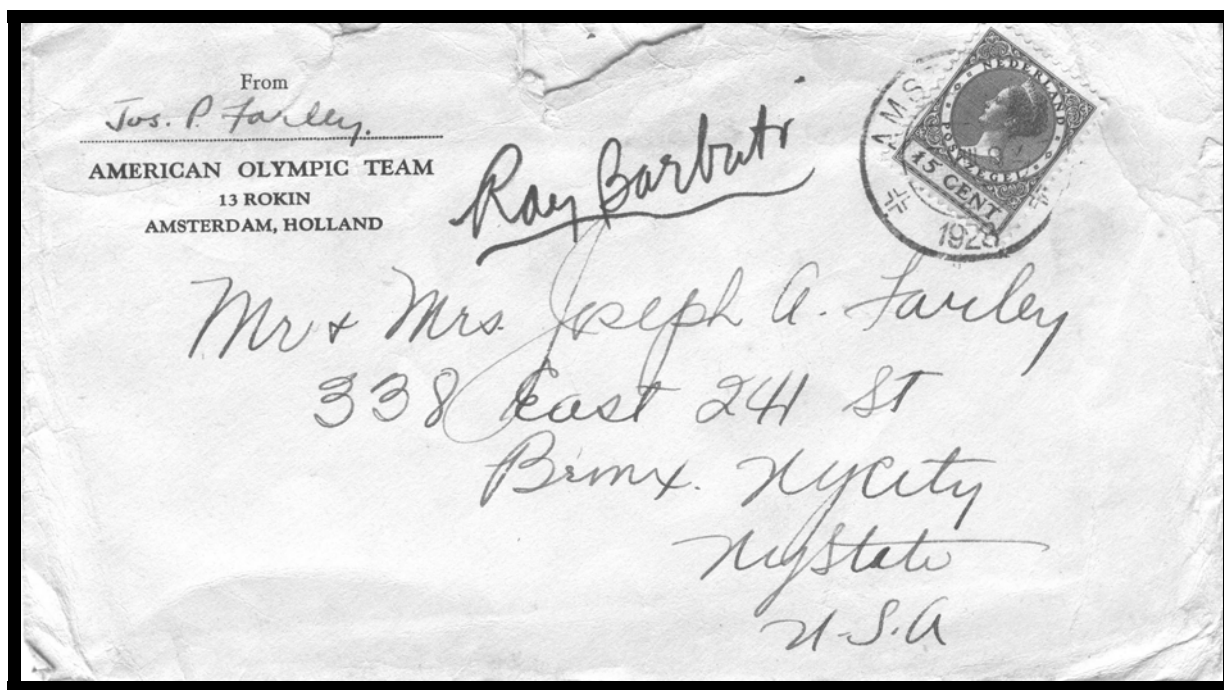 From
Jos. P. Farley.
AMERICAN OLYMPIC TEAM
13 ROKIN
AMSTERDAM, HOLLAND
Ray Barbuti
AMS
1928
NEDERLAND
POSTZEGEL
15 CENT
Mr & Mrs. Joseph A. Farley
338 East 241 St
Bronx. NYCity
NYState
U.S.A